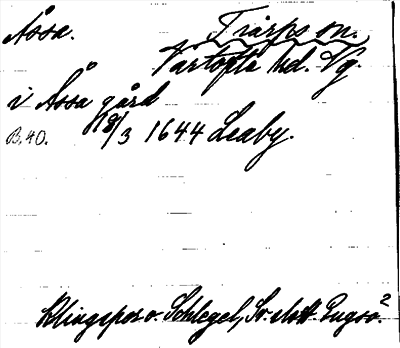 Åssa. Tiarps sn.
Vartofta hd. Vg.
i Åssa gård
B. 40. 18/3 1644 Leaby.
Klingspor o. Schlegel, Sv. slott. Engsö.²